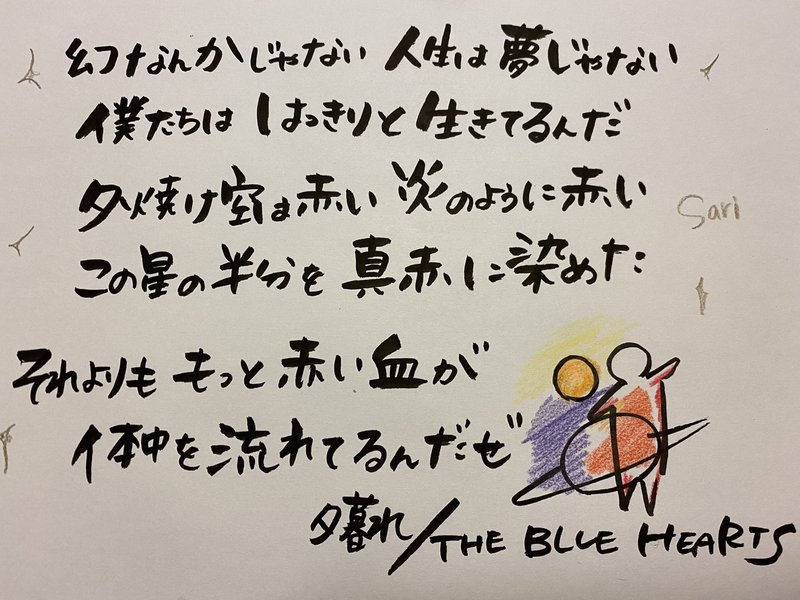 幻なんかじゃない 人生は夢じゃない
僕たちは はっきりと 生きてるんだ
夕焼け空は赤い 炎のように赤い
Sari
この星の半分を 真赤に染めた
それよりも もっと赤い血が
体中を流れてるんだぜ
夕暮れ/THE BLUE HEARTS